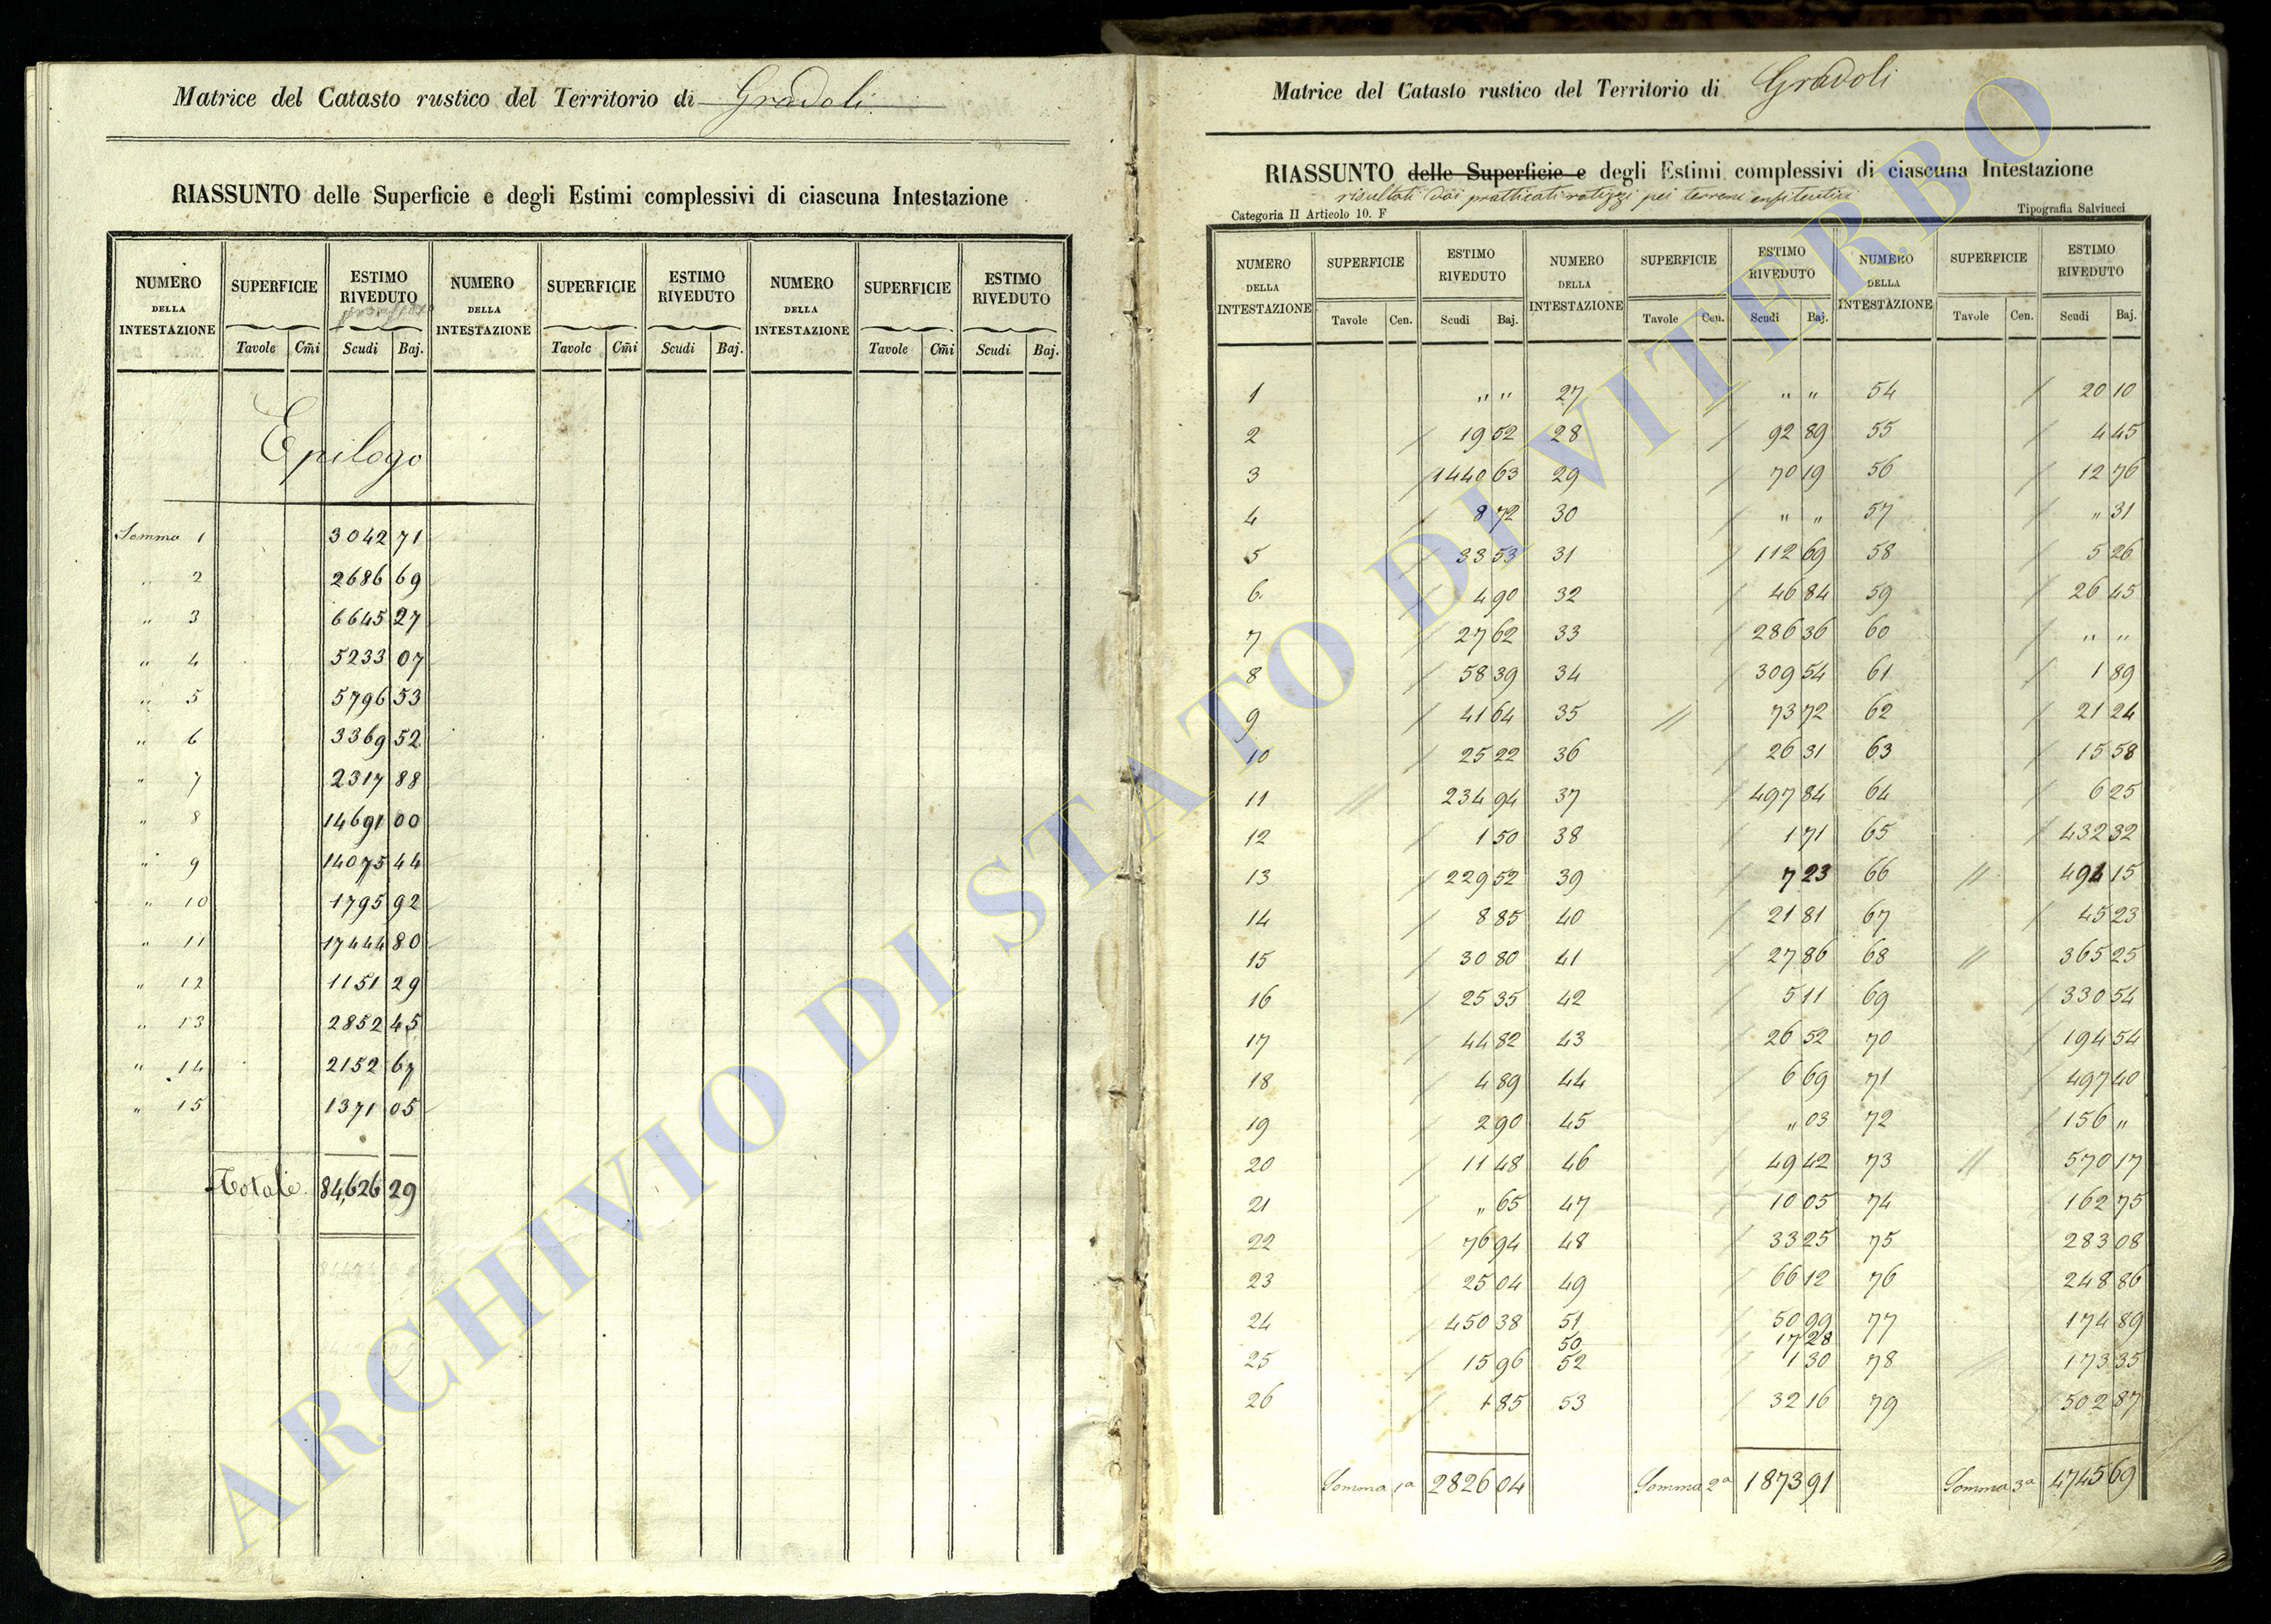 Matrice del Catasto rustico del Territorio di Gradoli
RIASSUNTO delle Superficie e degli Estimi complessivi di ciascuna Intestazione
NUMERO DELLA INTESTAZIONE SUPERFICIE ESTIMO RIVEDUTO NUMERO DELLA INTESTAZIONE SUPERFICIE ESTIMO RIVEDUTO NUMERO DELLA INTESTAZIONE SUPERFICIE ESTIMO RIVEDUTO
Tavole Cm̃i Scudi Baj. Tavole Cm̃i Scudi Baj. Tavole Cm̃i Scudi Baj.
Epilogo
Somma 1 3042 71
" 2 2686 69
" 3 6645 27
" 4 5233 07
" 5 5796 53
" 6 3369 52
" 7 2317 88
" 8 14691 00
" 9 14075 44
" 10 1795 92
" 11 17444 80
" 12 1151 29
" 13 2852 45
" 14 2152 67
" 15 1371 05
Totale 84,626 29
Matrice del Catasto rustico del Territorio di Gradoli
RIASSUNTO delle Superficie e degli Estimi complessivi di ciascuna Intestazione
risultati dai pratticati ratizzi pei terreni enfiteutici
Categoria II Articolo 10. F Tipografia Salviucci
NUMERO DELLA INTESTAZIONE SUPERFICIE ESTIMO RIVEDUTO NUMERO DELLA INTESTAZIONE SUPERFICIE ESTIMO RIVEDUTO NUMERO DELLA INTESTAZIONE SUPERFICIE ESTIMO RIVEDUTO
Tavole Cen. Scudi Baj. Tavole Cen. Scudi Baj. Tavole Cen. Scudi Baj.
1 " " 27 " " 54 20 10
2 19 52 28 92 89 55 4 45
3 1440 63 29 70 19 56 12 76
4 8 72 30 " " 57 " 31
5 33 53 31 112 69 58 5 26
6 4 90 32 46 84 59 26 45
7 27 62 33 286 36 60 " "
8 58 39 34 309 54 61 1 89
9 41 64 35 73 72 62 21 24
10 25 22 36 26 31 63 15 58
11 234 94 37 497 84 64 6 25
12 1 50 38 1 71 65 432 32
13 229 52 39 7 23 66 491 15
14 8 85 40 21 81 67 45 23
15 30 80 41 27 86 68 365 25
16 25 35 42 5 11 69 330 54
17 44 82 43 26 52 70 194 54
18 4 89 44 6 69 71 497 40
19 2 90 45 " 03 72 156 "
20 11 48 46 49 42 73 570 17
21 " 65 47 10 05 74 162 75
22 76 94 48 33 25 75 283 08
23 25 04 49 66 12 76 248 86
24 450 38 51 50 99 77 174 89
50 17 28
25 15 96 52 1 30 78 173 35
26 1 85 53 32 16 79 502 87
Somma 1ª 2826 04 Somma 2ª 1873 91 Somma 3ª 4745 69
ARCHIVIO DI STATO DI VITERBO